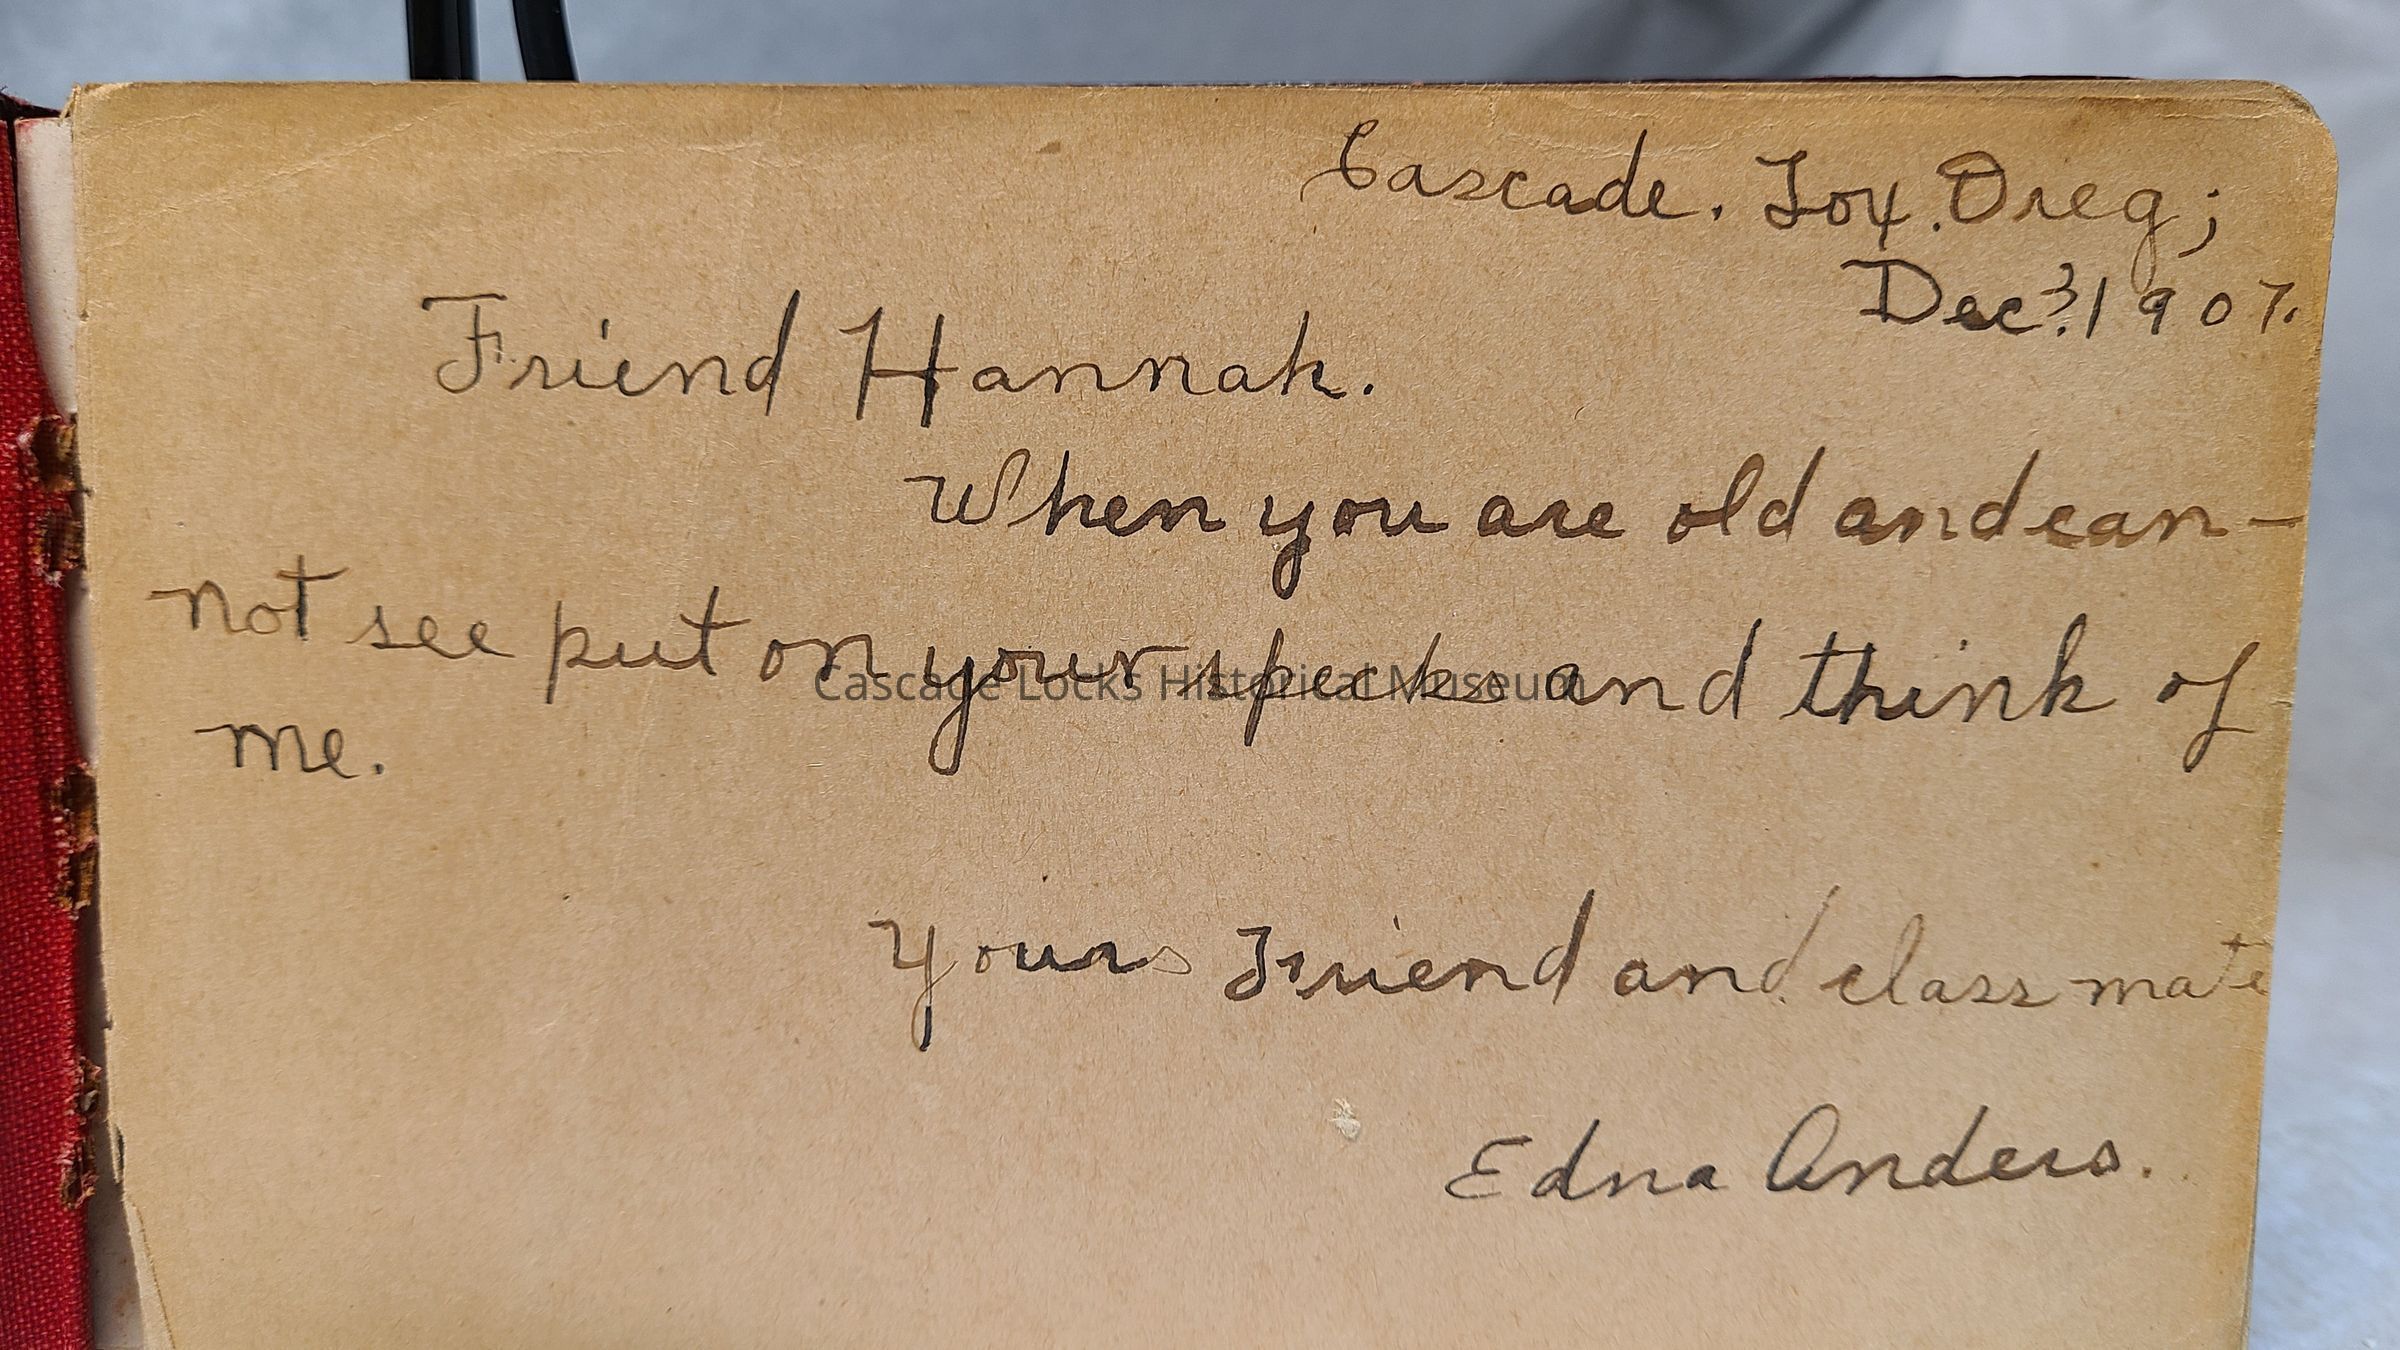 Cascade. Lox. Oreg;
Dec 3. 1907.
Friend Hannah.
When you are old and can-
not see put on your specks and think of
me.
Yours Friend and class mate
Edna Anders.
Cascade Locks Historical Museum